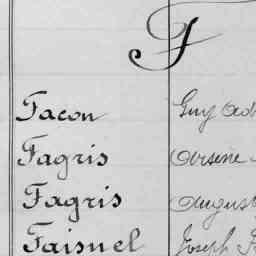 F
Facon Guy
Fagris Arsène
Fagris August
Faisnel Joseph